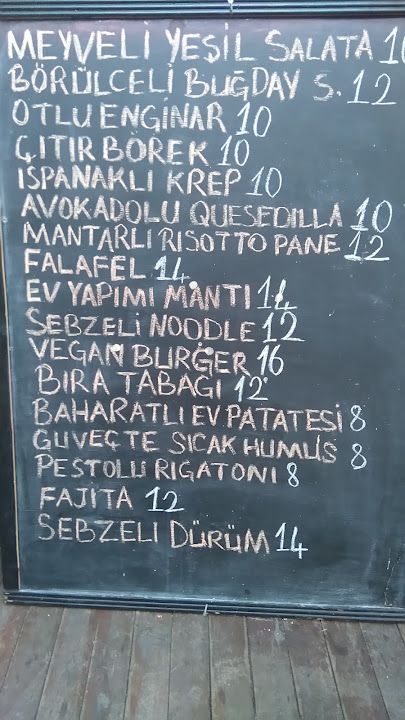 MEYVELİ YEŞİL SALATA 10
BÖRÜLCELİ BUĞDAY S. 12
OTLU ENGİNAR 10
ÇITIR BÖREK 10
ISPANAKLI KREP 10
AVOKADOLU QUESEDILLA 10
MANTARLI RISOTTO PANE 12
FALAFEL 14
EV YAPIMI MANTI 14
SEBZELİ NOODLE 12
VEGAN BURGER 16
BIRA TABAGI 12
BAHARATLI EV PATATESİ 8
GUVEÇTE SICAK HUMUS 8
PESTOLU RIGATONI 8
FAJITA 12
SEBZELİ DÜRÜM 14